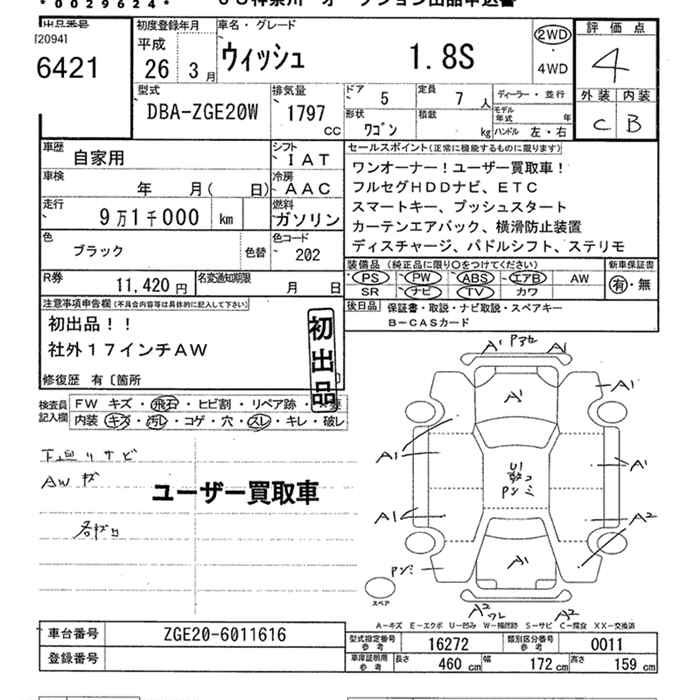 *0029624*
出品番号
[2094]
6421
初度登録年月
平成
26年 3月
車名・グレード
ウィッシュ 1.8S
2WD
4WD
評価点
4
外装 内装
C B
型式
DBA-ZGE20W
排気量
1797
CC
ドア
5
定員
7人
形状
ワゴン
積載
kg
ディーラー・並行
モデル年式 年
ハンドル 左・右
車歴
自家用
シフト
IAT
車検
年 月( 日)
冷房
AAC
走行
9万1千000 km
燃料
ガソリン
色
ブラック
色替
色コード
202
R券
11,420円
名変通知期限
月 日
セールスポイント(正常に機能するものに限ります)
ワンオーナー!ユーザー買取車!
フルセグHDDナビ、ETC
スマートキー、プッシュスタート
カーテンエアバック、横滑防止装置
ディスチャージ、パドルシフト、ステリモ
装備品(純正品に限り○をつけてください)
新車保証書
PS PW ABS エアB AW
SR ナビ TV カワ
有・無
後日品
保証書・取説・ナビ取説・スペアキー
B-CASカード
注意事項申告欄(不具合内容等は具体的に記入して下さい)
初出品!!
社外17インチAW
修復歴 有〔箇所
初出品
検査員記入欄
FW キズ・飛石・ヒビ割・リペア跡・
内装 キズ・汚レ・コゲ・穴・スレ・キレ・破レ
下廻りサビ
AWキズ
ユーザー買取車
A1
A1
A1
A1
A1
U1
A1
A1
A1
A2
A1
A2
A2
スペア
A-キズ E-エクボ U-凹み W-補修跡 S-サビ C-腐食 XX-交換済
車台番号
ZGE20-6011616
登録番号
型式指定番号
参考
16272
類別区分番号
参考
0011
車庫証明用
参考
長さ 460cm 幅 172cm 高さ 159cm